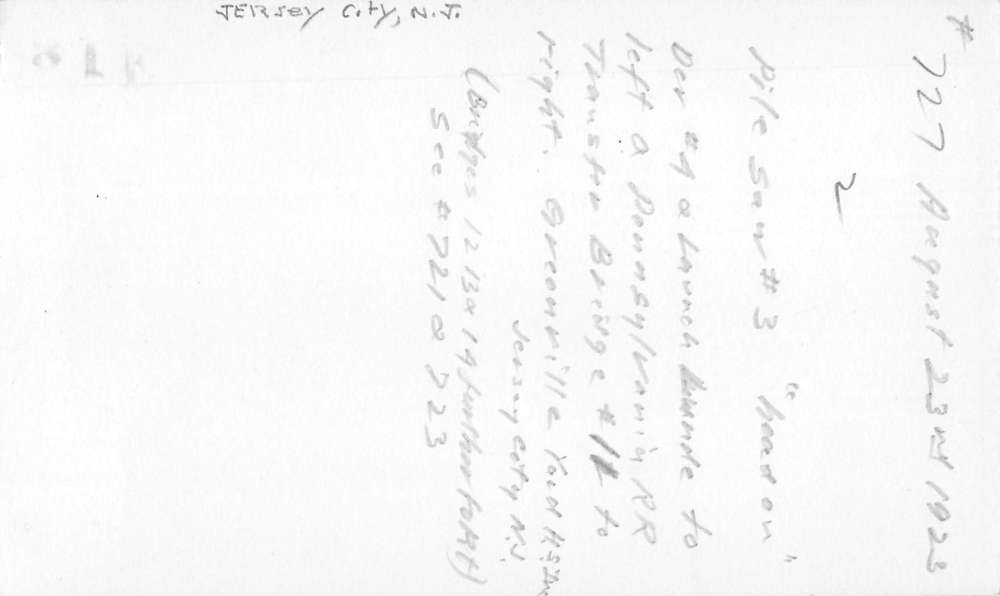 JERSEY CITY, N.J.
# 727 August 23rd 1923
2
Pile Saw #3 "head on"
Der #9 a Launch to
left a Pennsylvania RR
Transfer Bridge #11 to
right. Greenville Yard
Jersey City N.J.
(Bridges 12 13 & 14 further to left)
See # 721 & 723